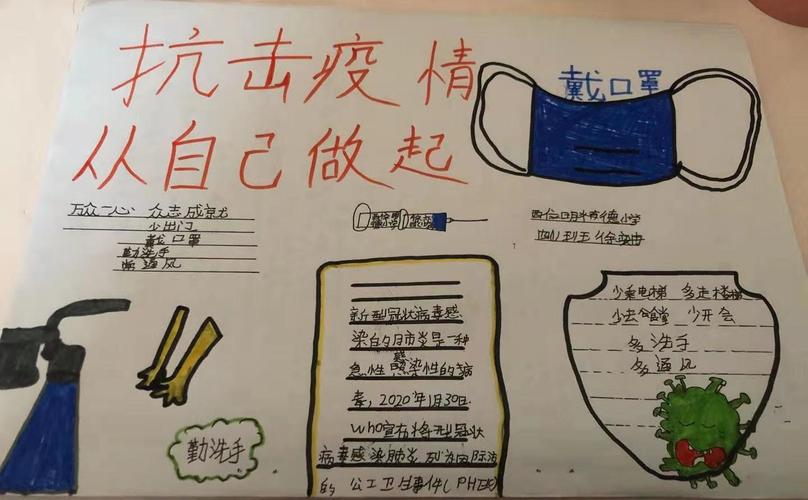 抗击疫情
从自己做起
戴口罩
万众一心 众志成城
少出门
戴口罩
勤洗手
常通风
勤洗手
新型冠状病毒感
染的肺炎是一种
急性感染性的病
毒，2020年1月30日
WHO宣布将新型冠状
病毒感染肺炎列为国际
的公工卫生事件(PHE
少乘电梯 多走楼梯
少去食堂 少开会
多洗手
多通风